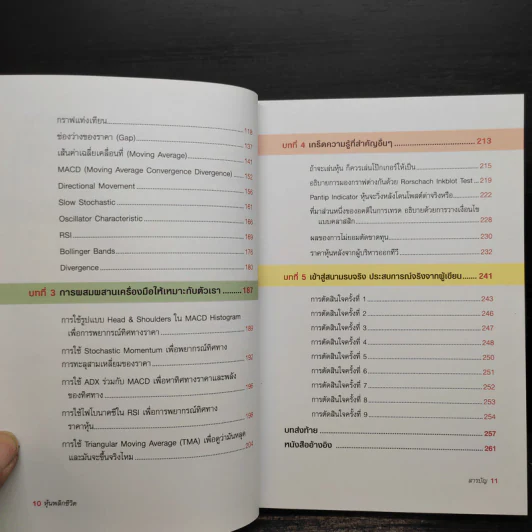 กราฟแท่งเทียน 119
ช่องว่างของราคา (Gap) 137
เส้นค่าเฉลี่ยเคลื่อนที่ (Moving Average) 141
MACD (Moving Average Convergence Divergence) 152
Directional Movement 156
Slow Stochastic 161
Oscillator Characteristic 165
RSI 169
Bollinger Bands 176
Divergence 180
บทที่ 3 การผสมผสานเครื่องมือให้เหมาะกับตัวเรา 187
การใช้รูปแบบ Head & Shoulders ใน MACD Histogram
เพื่อการพยากรณ์ทิศทางราคา 189
การใช้ Stochastic Momentum เพื่อพยากรณ์ทิศทาง
การทะลุสามเหลี่ยมของราคา 192
การใช้ ADX ร่วมกับ MACD เพื่อหาทิศทางราคาและพลัง
ของทิศทาง 196
การใช้ไฟโบนาคซีใน RSI เพื่อการพยากรณ์ทิศทาง
ราคาหุ้น 199
การใช้ Triangular Moving Average (TMA) เพื่อดูว่ามันหลุด
และมันจะขึ้นจริงไหม 204
10 หุ้นพลิกชีวิต
บทที่ 4 เกร็ดความรู้ที่สำคัญอื่นๆ 213
ถ้าจะเล่นหุ้น ก็ควรเล่นโป๊กเกอร์ให้เป็น 215
อธิบายการมองกราฟต่างกันด้วย Rorschach Inkblot Test 219
Pantip Indicator หุ้นจะวิ่งหลังโดนโพสต์ด่าจริงหรือ 222
ที่มาส่วนหนึ่งของอคติในการเทรด อธิบายด้วยการวางเงื่อนไข
แบบคลาสสิก 228
ผลของการไม่ยอมตัดขาดทุน 230
ราคาหุ้นหลังจากผู้บริหารออกทีวี 232
บทที่ 5 เข้าสู่สนามรบจริง ประสบการณ์จริงจากผู้เขียน 241
การตัดสินใจครั้งที่ 1 243
การตัดสินใจครั้งที่ 2 246
การตัดสินใจครั้งที่ 3 247
การตัดสินใจครั้งที่ 4 248
การตัดสินใจครั้งที่ 5 250
การตัดสินใจครั้งที่ 6 251
การตัดสินใจครั้งที่ 7 252
การตัดสินใจครั้งที่ 8 253
การตัดสินใจครั้งที่ 9 254
บทส่งท้าย 257
หนังสืออ้างอิง 261
สารบัญ 11